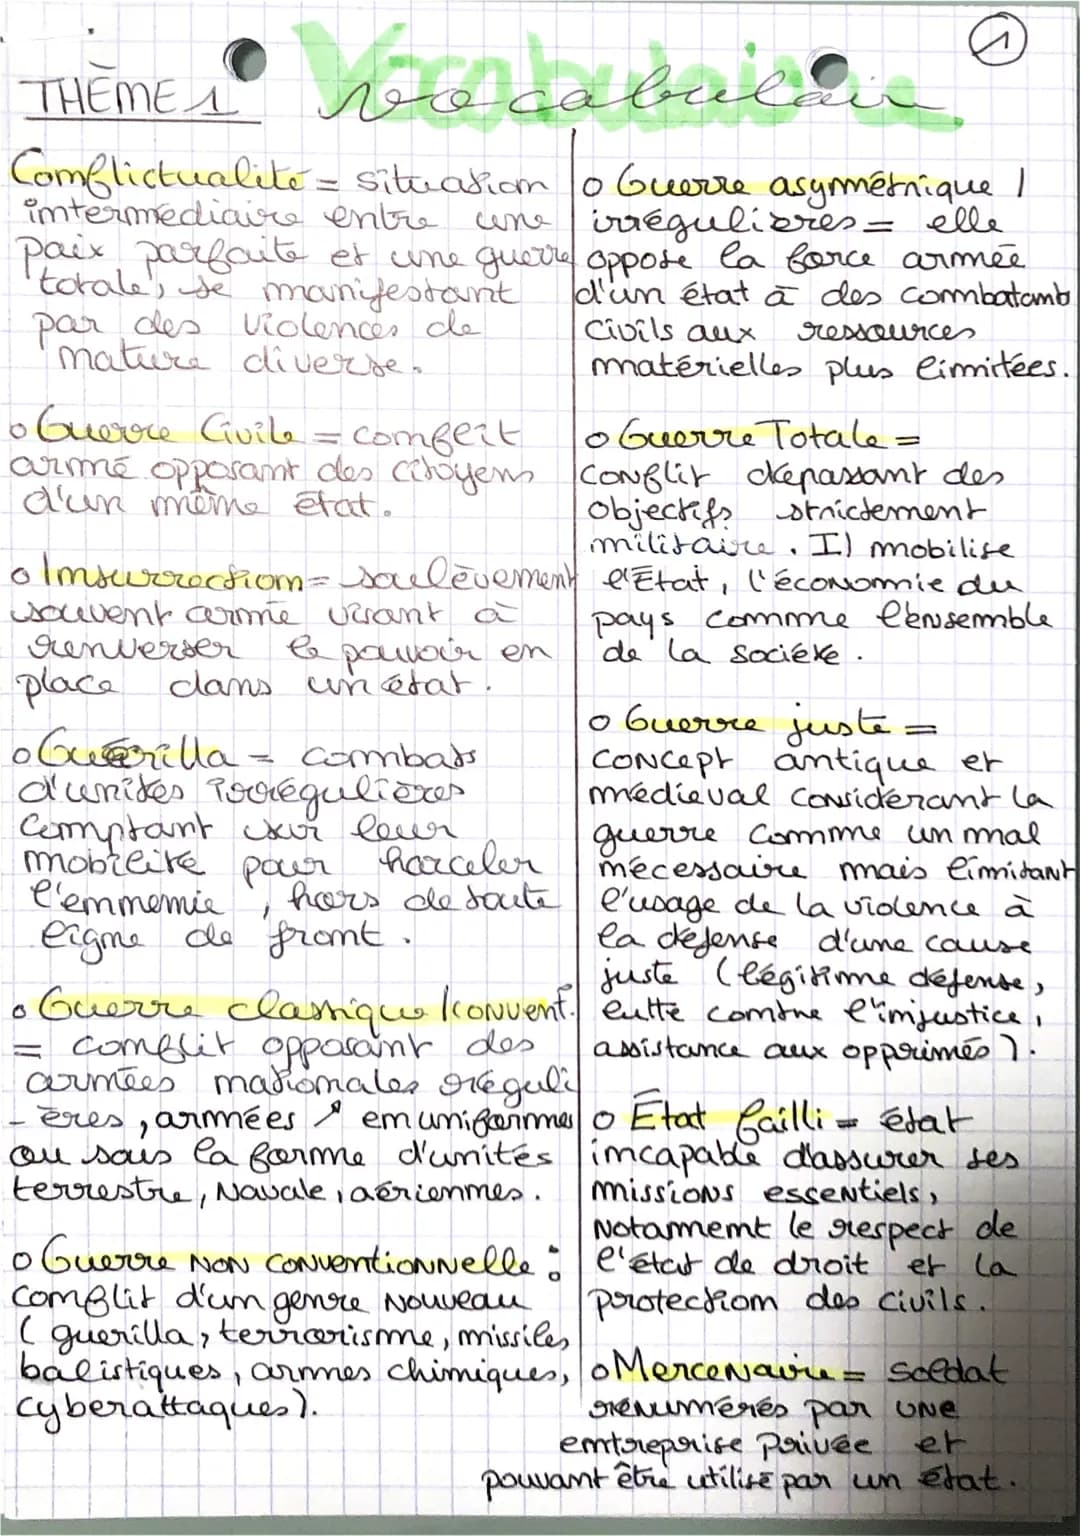 1
THÈME 1 Vocabulaire
Conflictualité = situation
intermédiaire entre une
paix parfaite et une guerre
totale, se manifestant
par des violences de
nature diverse.
o Guerre Civile = conflit
armé opposant des citoyens
d'un même état.
o Insurrection = soulèvement
souvent armé visant à
renverser le pouvoir en
place dans un état.
o Guérilla = combats
d'unités irrégulières
comptant sur leur
mobilité pour harceler
l'ennemie, hors de toute
ligne de front.
o Guerre classique / convent.
= conflit opposant des
armées nationales réguli
- ères, armées, en uniforme
ou sous la forme d'unités
terrestre, Navale, aériennes.
o Guerre NON conventionnelle :
conflit d'un genre Nouveau
( guerilla, terrorisme, missiles,
balistiques, armes chimiques,
cyberattaques).
o Guerre asymétrique /
irrégulières = elle
oppose la force armée
d'un état à des combatants
civils aux ressources
matérielles plus limitées.
o Guerre Totale =
conflit dépassant des
objectifs strictement
militaire. Il mobilise
l'État, l'économie du
pays comme l'ensemble
de la société.
o Guerre juste =
concept antique et
médieval considérant la
guerre comme un mal
nécessaire mais limitant
l'usage de la violence à
la défense d'une cause
juste (légitime défense,
lutte contre l'injustice,
assistance aux opprimés).
o État failli = état
incapable d'assurer ses
missions essentiels,
Notamment le respect de
l'état de droit et la
protection des civils.
o Mercenaire = soldat
rénumérés par une
entreprise privée et
pouvant être utilisé par un état.